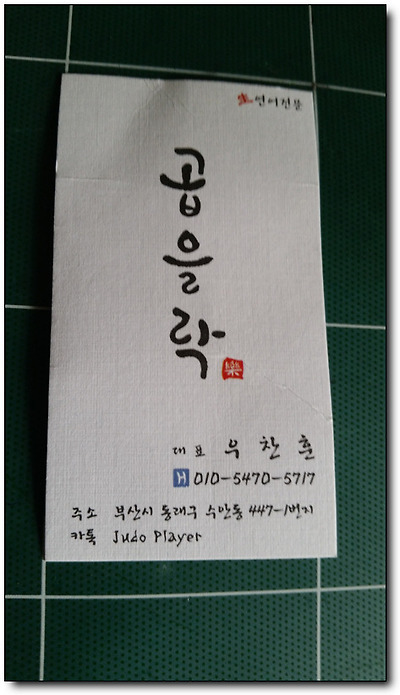 生연어전문
곱을락
樂
대표 우찬훈
H 010-5470-5717
주소 부산시 동래구 수안동 447-1번지
카톡 Judo Player